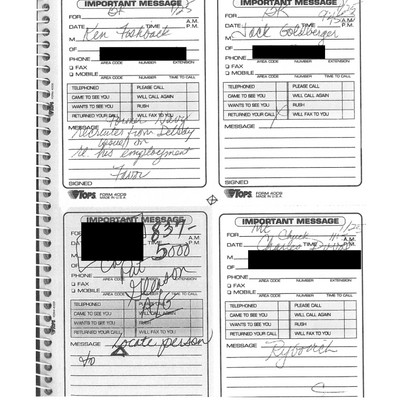 IMPORTANT MESSAGE
FOR
DATE TIME A.M. P.M.
M Ken Fishback
OF
PHONE
AREA CODE NUMBER EXTENSION
FAX
MOBILE
AREA CODE NUMBER TIME TO CALL
TELEPHONED PLEASE CALL
CAME TO SEE YOU WILL CALL AGAIN
WANTS TO SEE YOU RUSH
RETURNED YOUR CALL WILL FAX TO YOU
MESSAGE Former Navy
recruiter from Delray
his employment
Favor
SIGNED
TOPS FORM 4009
MADE IN U.S.A.
IMPORTANT MESSAGE
FOR
DATE TIME A.M. P.M.
M Jack Goldberger
OF
PHONE
AREA CODE NUMBER EXTENSION
FAX
MOBILE
AREA CODE NUMBER TIME TO CALL
TELEPHONED PLEASE CALL
CAME TO SEE YOU WILL CALL AGAIN
WANTS TO SEE YOU RUSH
RETURNED YOUR CALL X WILL FAX TO YOU
MESSAGE
SIGNED
TOPS FORM 4009
MADE IN U.S.A.
IMPORTANT MESSAGE
837-
5000
Pat
Gleason
AREA CODE
MOBILE
TELEPHONED PLEASE CALL
CAME TO SEE YOU WILL CALL AGAIN
WANTS TO SEE YOU RUSH
RETURNED YOUR CALL WILL FAX TO YOU
MESSAGE locate person
IMPORTANT MESSAGE
FOR
DATE TIME
M
OF
PHONE
AREA CODE NUMBER EXTENSION
FAX
MOBILE
AREA CODE NUMBER TIME TO CALL
TELEPHONED PLEASE CALL
CAME TO SEE YOU WILL CALL AGAIN
WANTS TO SEE YOU RUSH
RETURNED YOUR CALL WILL FAX TO YOU
MESSAGE
Rybovich